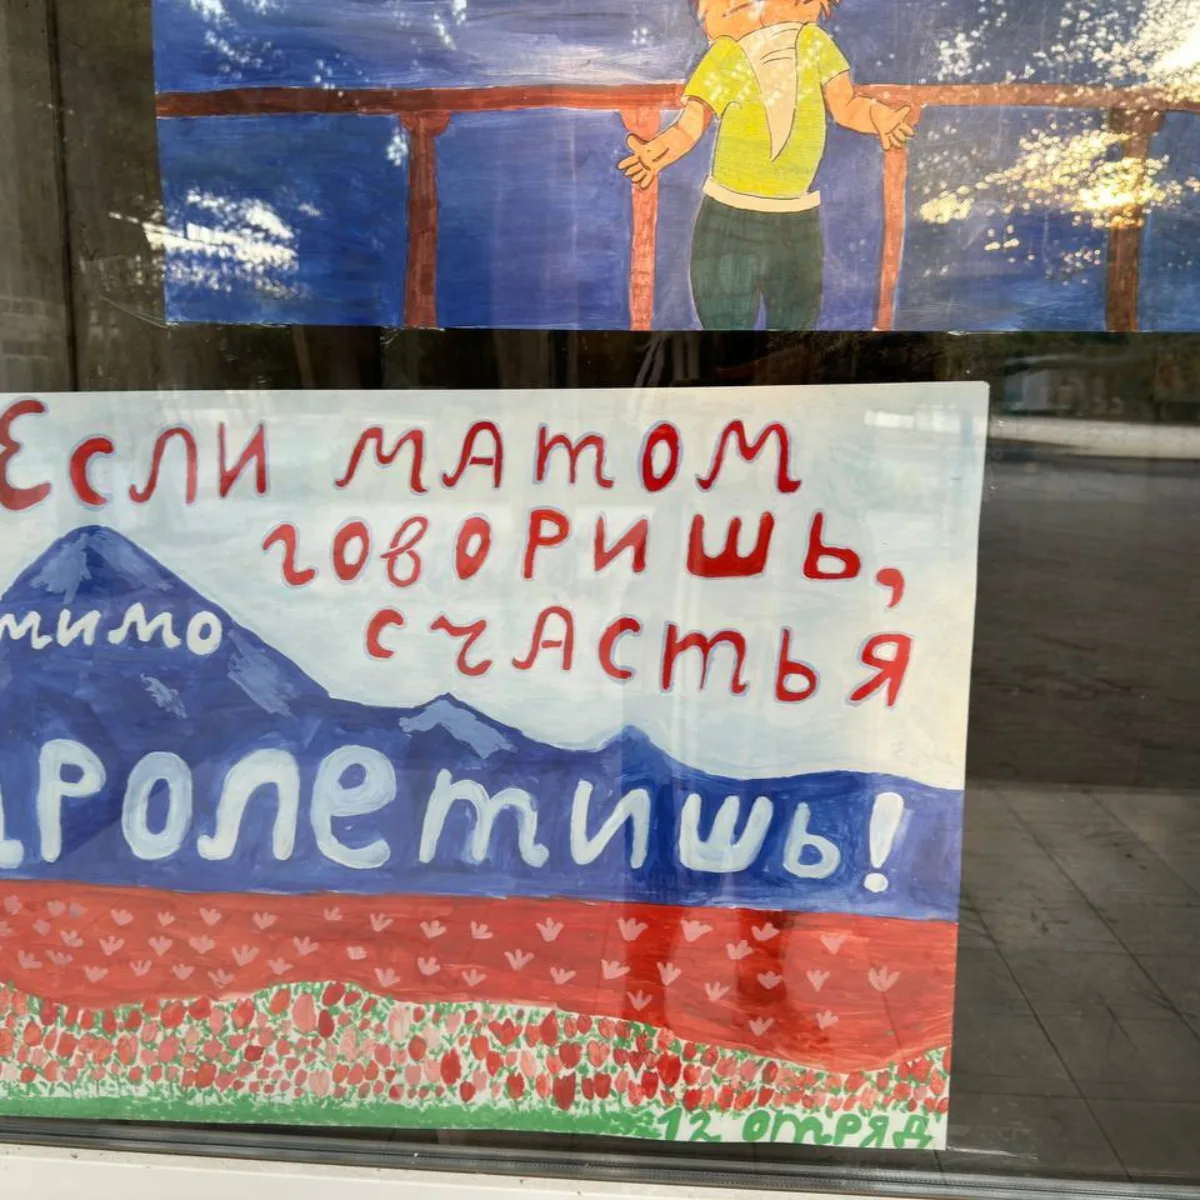 Если матом
говоришь,
счастья
мимо
пролетишь!
12 отряд